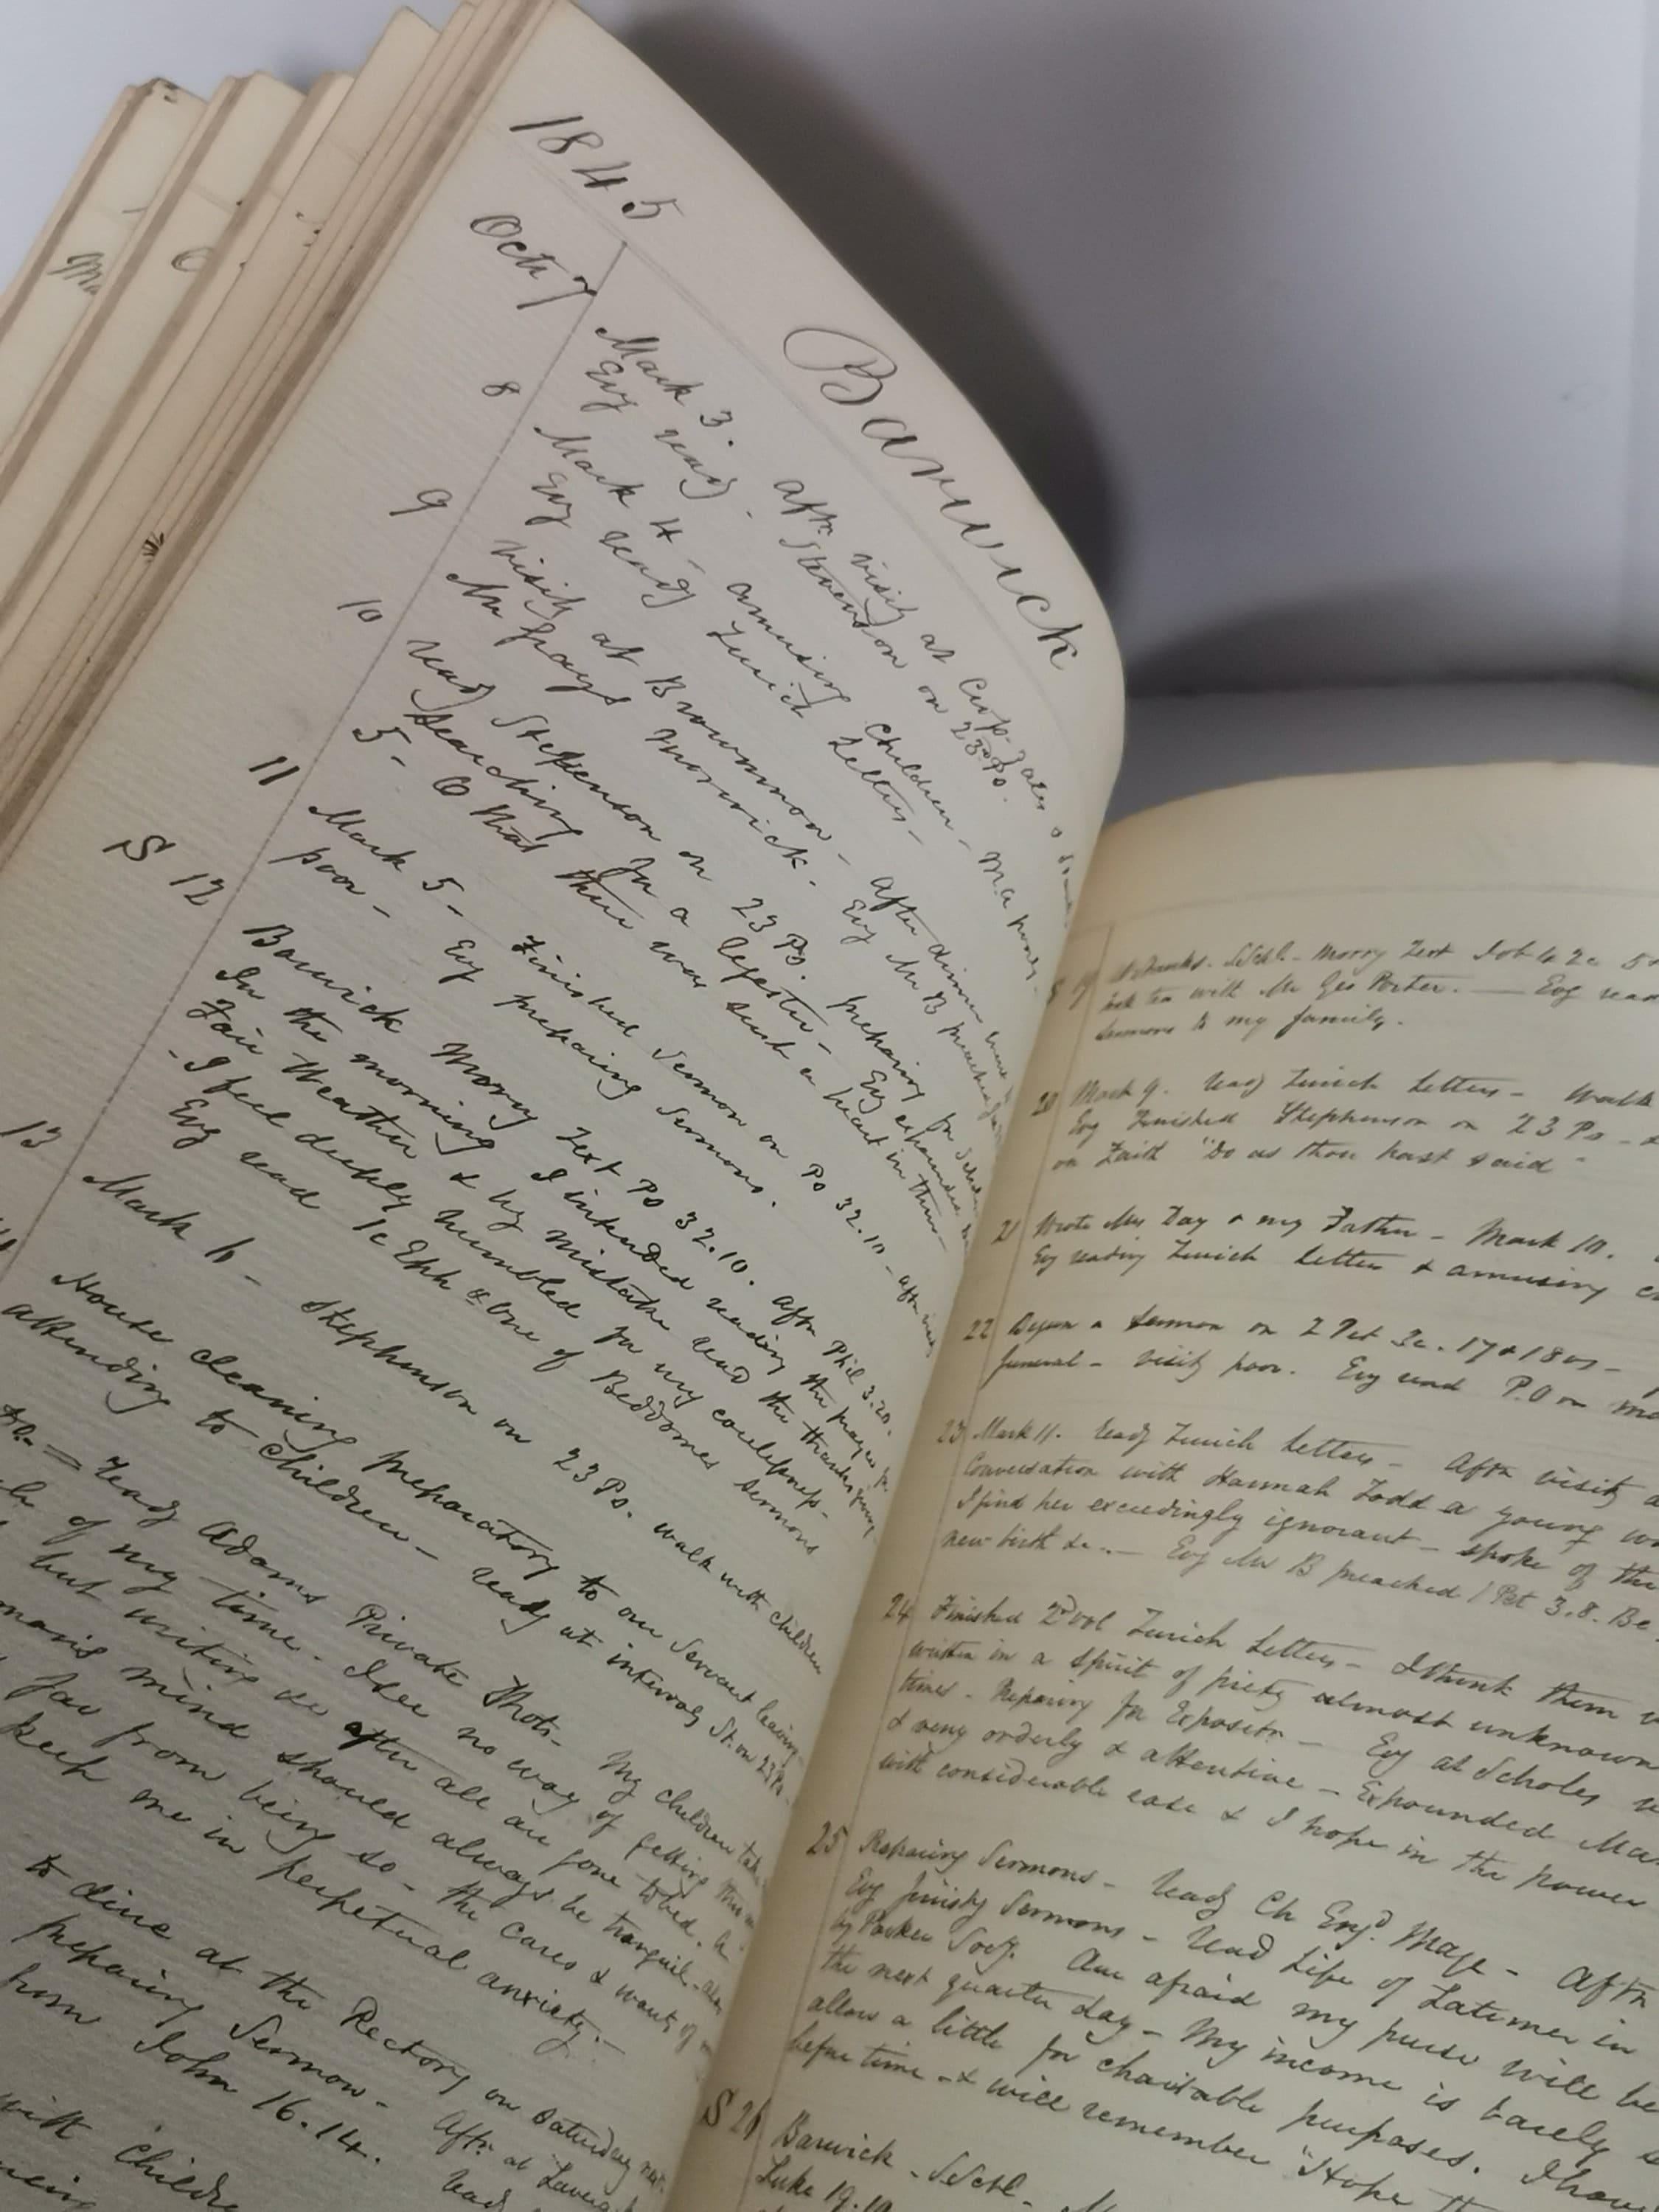 1845
Barwick
Octr 7 Mark 3. Aftn visitg at Cropgates &
Evg readg Stevenson on 23rd Ps.
8 Mark 4 - amusing Children -
Evg readg Zurich Letters -
9 Visitg at Brownmoor - after dinner
Mr Grays Morwick. Evg Mr B preached
10 readg Stephenson on 23 Ps. preparing for
Searching for a lecture - Evg expounded
5 - O that there was such a heart in them -
11 Mark 5 - Finished Sermon on Ps 32.10 - aftn
poor - Evg preparing Sermons.
S 12 Barwick Morng Text Ps 32.10. Aftn Phil 3.20.
In the morning I intended reading the prayer for
Fair Weather & by mistake read the thanksgiving
- I feel deeply humbled for my carelessness -
Evg read 1c Eph & one of Beddomes Sermons
13 Mark 6 - Stephenson on 23 Ps. walk with children
House cleaning preparatory to our Servant leaving -
attending to Children - readg at intervals St. on 23 Ps.
readg Adams Private Thots - My children take
of my time - I see no way of getting thro
but writing ser after all are gone to bed. A
mans mind should always be tranquil -
far from being so - the cares & wants of
keep me in perpetual anxiety. -
to dine at the Rectory on Saturday next
preparing Sermon - Aftn at
from John 16.14. readg
with Children
S 19 SSchl. - Morng Text Job 42c 5
tea with Mr Geo Porter. - Evg read
Sermons to my family.
20 Mark 9. readg Zurich Letters - Walk
Evg Finished Stephenson on 23 Ps -
on Faith "Do as thou hast said"
21 Wrote Mrs Day & my Father - Mark 10.
Evg reading Zurich Letters & amusing
22 Begun a Sermon on 2 Pet 3c. 17 & 18 vs -
funeral - visitg poor. Evg read P.O on
23 Mark 11. readg Zurich Letters - Aftn visitg
Conversation with Hannah Todd a young
I find her exceedingly ignorant - spoke of the
new birth &c. - Evg Mr B preached 1 Pet 3.8. Be
24 Finished 2d vol Zurich Letters - I think them
written in a spirit of piety almost unknown
times - Preparing for Expositn - Evg at Scholes
& very orderly & attentive - Expounded
with considerable ease & I hope in the power
25 Preparing Sermons - readg Ch Engd Mage - Aftn
Evg finishg Sermons - read Life of Latimer in
by Parker Socy. Am afraid my purse will be
the next quarter day - My income is barely
allow a little for charitable purposes. I
before time - & will remember "Hope
S 26 Barwick - SSchl -
Luke 19.10